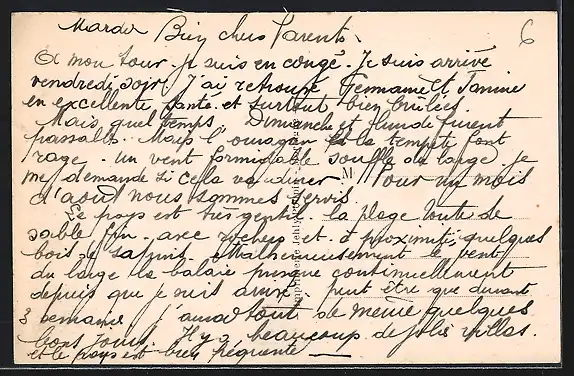 Mardi Bien chers Parents.
A mon tour je suis en congé. Je suis arrivé
vendredi soir. J'ai retrouvé Germaine et Janine
en excellente santé et surtout bien brulées.
Mais quel temps, Dimanche et furent
passable. Mais l'ouragan et la tempête font
rage. un vent formidable souffle du large. je
me demande si cela va durer M Pour un mois
d'aout nous sommes servis.
Le pays est très gentil. la plage toute de
sable fin avec rochers et à proximité, quelques
bois de sapins. Malheureusement le vent
du large la balaie presque continuellement
depuis que je suis arrivé. peut être que durant
3 semaines j'aurai tout de même quelques
bons jours. Il y a beaucoup de jolies villas.
et le pays est bien fréquenté
6
Imprimerie